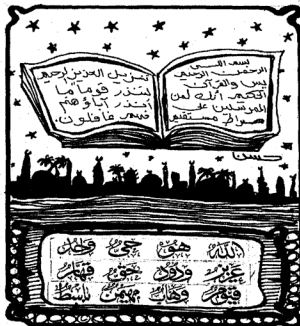 بسم الله
الرحمن الرحيم
يس والقرآن
الحكيم انك لمن
المرسلين على
صراط مستقيم
تنزيل العزيز الرحيم
لتنذر قوما ما
أنذر آباؤهم
فهم غافلون
حسن
الله هو حي واحد
عزيز ودود حق قهار
وهاب مهيمن باسط